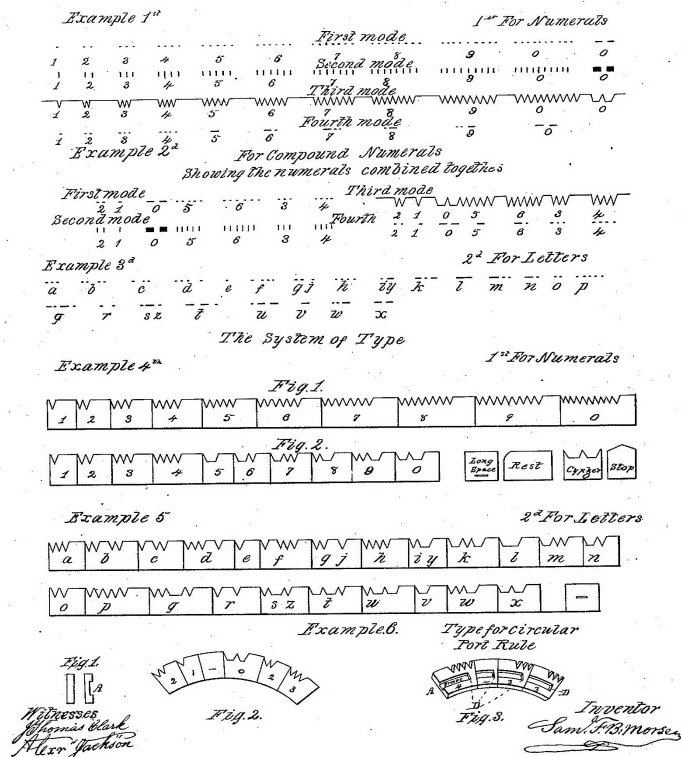 Example 1st 1st For Numerals
First mode
1 2 3 4 5 6 7 8 9 0 0
Second mode
1 2 3 4 5 6 7 8 9 0 0
Third mode
1 2 3 4 5 6 7 8 9 0 0
Fourth mode
1 2 3 4 5 6 7 8 9 0
Example 2d For Compound Numerals
Showing the numerals combined together
First mode Third mode
2 1 0 5 6 3 4
2 1 0 5 6 3 4
Second mode Fourth
2 1 0 5 6 3 4
2 1 0 5 6 3 4
Example 3d 2d For Letters
a b c d e f g j h i y k l m n o p
q r s z t u v w x
The System of Type
Example 4th 1st For Numerals
Fig. 1.
1 2 3 4 5 6 7 8 9 0
Fig. 2.
1 2 3 4 5 6 7 8 9 0 Long Space Rest Cypher Stop
Example 5 2d For Letters
a b c d e f g j h i y k l m n
o p q r s z t u v w x –
Example 6. Type for circular
Port Rule
Fig. 1.
A
2 1 – 0 2 3
Fig. 2.
A 4 – 3 3 D
D
Fig. 3.
Witnesses
Thomas Clark
Alexr Jackson
Inventor
Sam. F. B. Morse